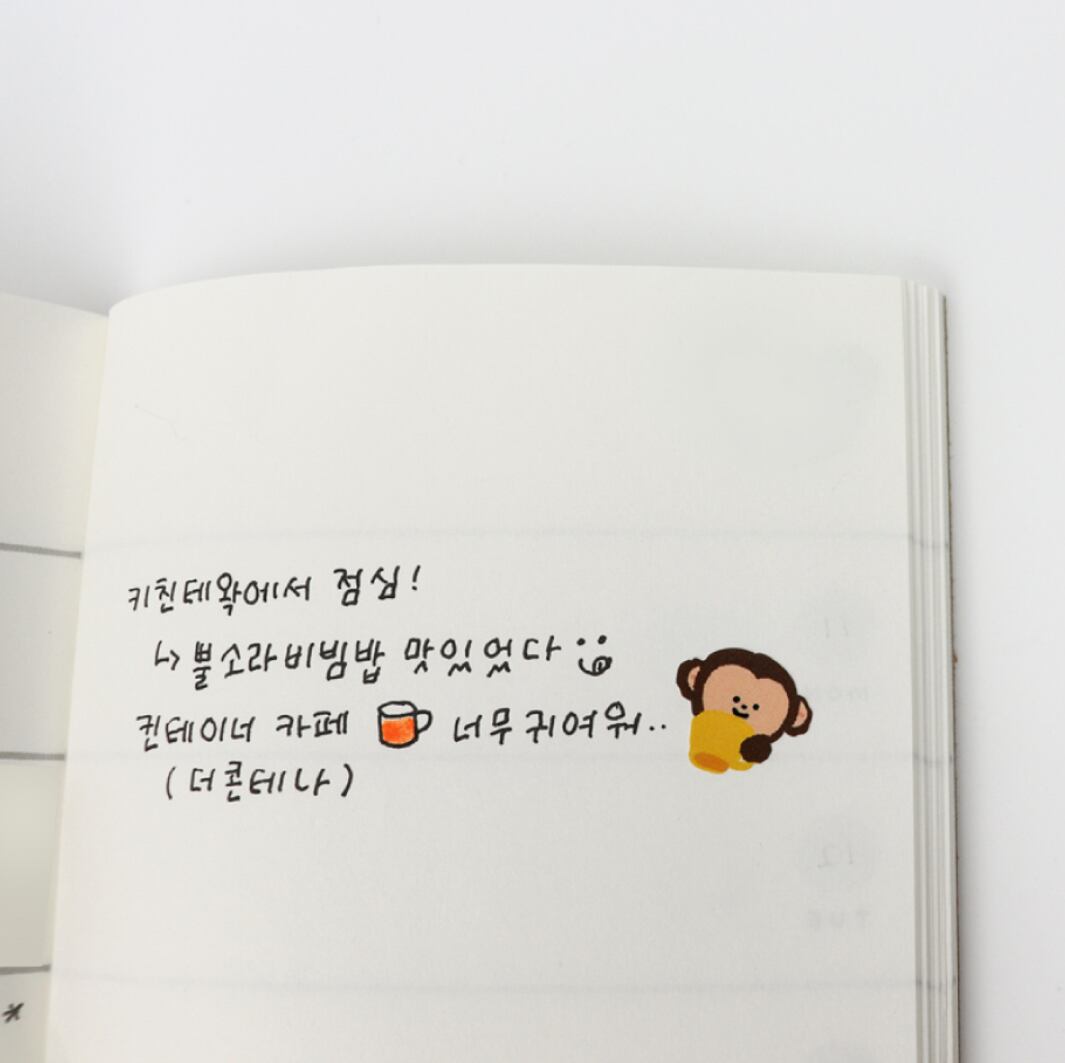 키친테왁에서 점심!
↳ 뿔소라비빔밥 맛있었다
컨테이너 카페 너무 귀여워..
(더콘테나)
*
11
MON
12
TUE